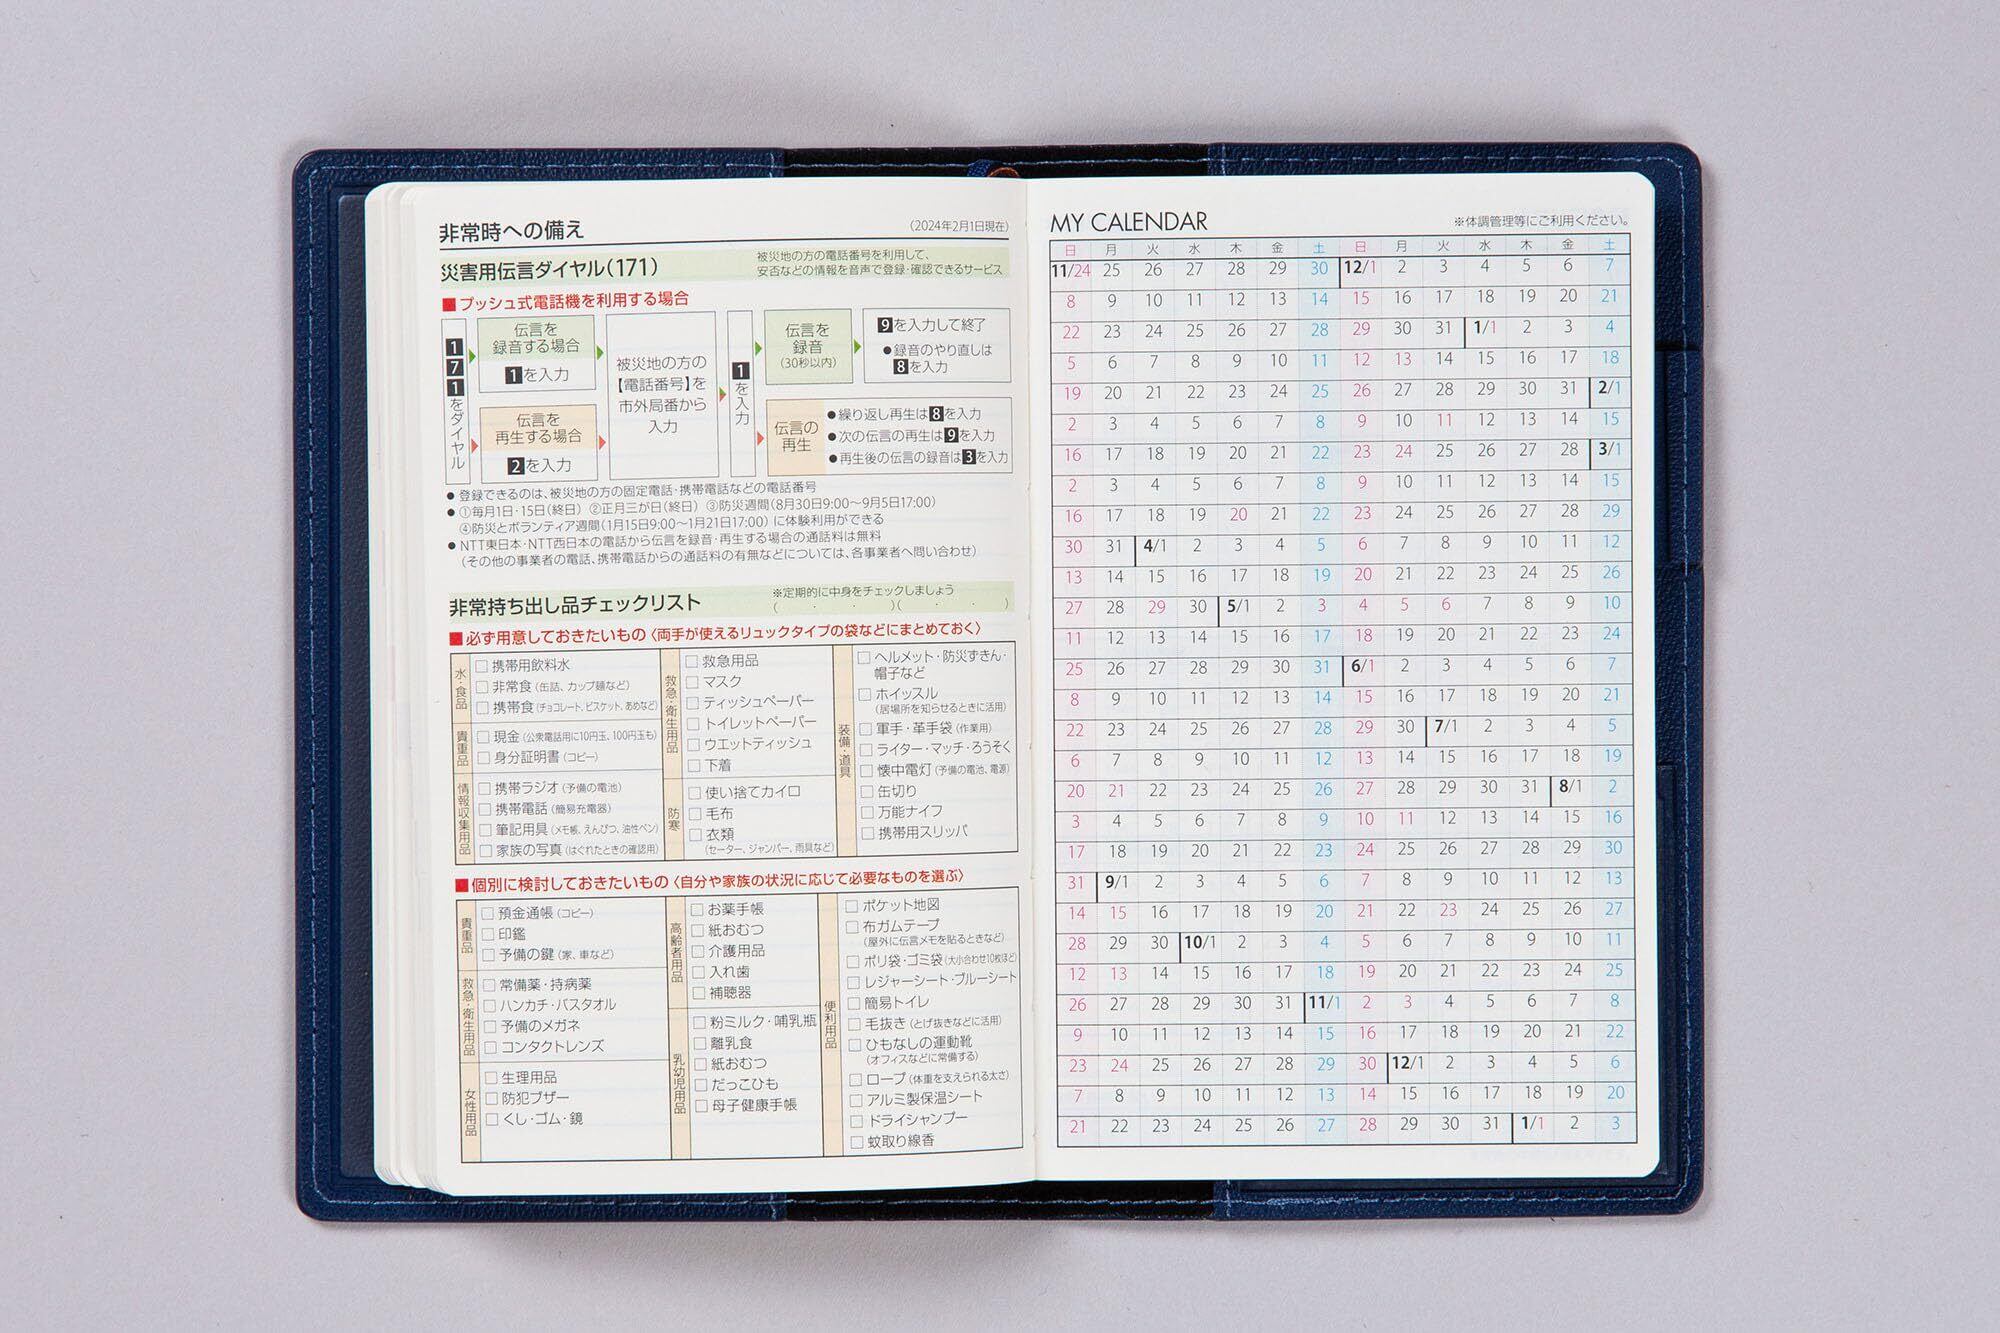 非常時への備え
(2024年2月1日現在)
災害用伝言ダイヤル(171)
被災地の方の電話番号を利用して、
安否などの情報を音声で登録・確認できるサービス
■プッシュ式電話機を利用する場合
171をダイヤル
伝言を
録音する場合
1を入力
伝言を
再生する場合
2を入力
被災地の方の
【電話番号】を
市外局番から
入力
1を入力
伝言を
録音
(30秒以内)
9を入力して終了
●録音のやり直しは
8を入力
伝言の
再生
●繰り返し再生は8を入力
●次の伝言の再生は9を入力
●再生後の伝言の録音は3を入力
●登録できるのは、被災地の方の固定電話・携帯電話などの電話番号
●①毎月1日・15日(終日) ②正月三が日(終日) ③防災週間(8月30日9:00～9月5日17:00)
④防災とボランティア週間(1月15日9:00～1月21日17:00) に体験利用ができる
●NTT東日本・NTT西日本の電話から伝言を録音・再生する場合の通話料は無料
(その他の事業者の電話、携帯電話からの通話料の有無などについては、各事業者へ問い合わせ)
非常持ち出し品チェックリスト
※定期的に中身をチェックしましょう
( ・ ・ )( ・ ・ )
■必ず用意しておきたいもの〈両手が使えるリュックタイプの袋などにまとめておく〉
水・食品
□携帯用飲料水
□非常食(缶詰、カップ麺など)
□携帯食(チョコレート、ビスケット、あめなど)
貴重品
□現金(公衆電話用に10円玉、100円玉も)
□身分証明書(コピー)
情報収集用品
□携帯ラジオ(予備の電池)
□携帯電話(簡易充電器)
□筆記用具(メモ帳、えんぴつ、油性ペン)
□家族の写真(はぐれたときの確認用)
救急・衛生用品
□救急用品
□マスク
□ティッシュペーパー
□トイレットペーパー
□ウエットティッシュ
□下着
防寒
□使い捨てカイロ
□毛布
□衣類
(セーター、ジャンパー、雨具など)
装備・道具
□ヘルメット・防災ずきん・
帽子など
□ホイッスル
(居場所を知らせるときに活用)
□軍手・革手袋(作業用)
□ライター・マッチ・ろうそく
□懐中電灯(予備の電池、電源)
□缶切り
□万能ナイフ
□携帯用スリッパ
■個別に検討しておきたいもの〈自分や家族の状況に応じて必要なものを選ぶ〉
貴重品
□預金通帳(コピー)
□印鑑
□予備の鍵(家、車など)
救急・衛生用品
□常備薬・持病薬
□ハンカチ・バスタオル
□予備のメガネ
□コンタクトレンズ
女性用品
□生理用品
□防犯ブザー
□くし・ゴム・鏡
高齢者用品
□お薬手帳
□紙おむつ
□介護用品
□入れ歯
□補聴器
乳幼児用品
□粉ミルク・哺乳瓶
□離乳食
□紙おむつ
□だっこひも
□母子健康手帳
便利用品
□ポケット地図
□布ガムテープ
(屋外に伝言メモを貼るときなど)
□ポリ袋・ゴミ袋(大小合わせ10枚ほど)
□レジャーシート・ブルーシート
□簡易トイレ
□毛抜き(とげ抜きなどに活用)
□ひもなしの運動靴
(オフィスなどに常備する)
□ロープ(体重を支えられる太さ)
□アルミ製保温シート
□ドライシャンプー
□蚊取り線香
MY CALENDAR
※体調管理等にご利用ください。
日 月 火 水 木 金 土 日 月 火 水 木 金 土
11/24 25 26 27 28 29 30 12/1 2 3 4 5 6 7
8 9 10 11 12 13 14 15 16 17 18 19 20 21
22 23 24 25 26 27 28 29 30 31 1/1 2 3 4
5 6 7 8 9 10 11 12 13 14 15 16 17 18
19 20 21 22 23 24 25 26 27 28 29 30 31 2/1
2 3 4 5 6 7 8 9 10 11 12 13 14 15
16 17 18 19 20 21 22 23 24 25 26 27 28 3/1
2 3 4 5 6 7 8 9 10 11 12 13 14 15
16 17 18 19 20 21 22 23 24 25 26 27 28 29
30 31 4/1 2 3 4 5 6 7 8 9 10 11 12
13 14 15 16 17 18 19 20 21 22 23 24 25 26
27 28 29 30 5/1 2 3 4 5 6 7 8 9 10
11 12 13 14 15 16 17 18 19 20 21 22 23 24
25 26 27 28 29 30 31 6/1 2 3 4 5 6 7
8 9 10 11 12 13 14 15 16 17 18 19 20 21
22 23 24 25 26 27 28 29 30 7/1 2 3 4 5
6 7 8 9 10 11 12 13 14 15 16 17 18 19
20 21 22 23 24 25 26 27 28 29 30 31 8/1 2
3 4 5 6 7 8 9 10 11 12 13 14 15 16
17 18 19 20 21 22 23 24 25 26 27 28 29 30
31 9/1 2 3 4 5 6 7 8 9 10 11 12 13
14 15 16 17 18 19 20 21 22 23 24 25 26 27
28 29 30 10/1 2 3 4 5 6 7 8 9 10 11
12 13 14 15 16 17 18 19 20 21 22 23 24 25
26 27 28 29 30 31 11/1 2 3 4 5 6 7 8
9 10 11 12 13 14 15 16 17 18 19 20 21 22
23 24 25 26 27 28 29 30 12/1 2 3 4 5 6
7 8 9 10 11 12 13 14 15 16 17 18 19 20
21 22 23 24 25 26 27 28 29 30 31 1/1 2 3